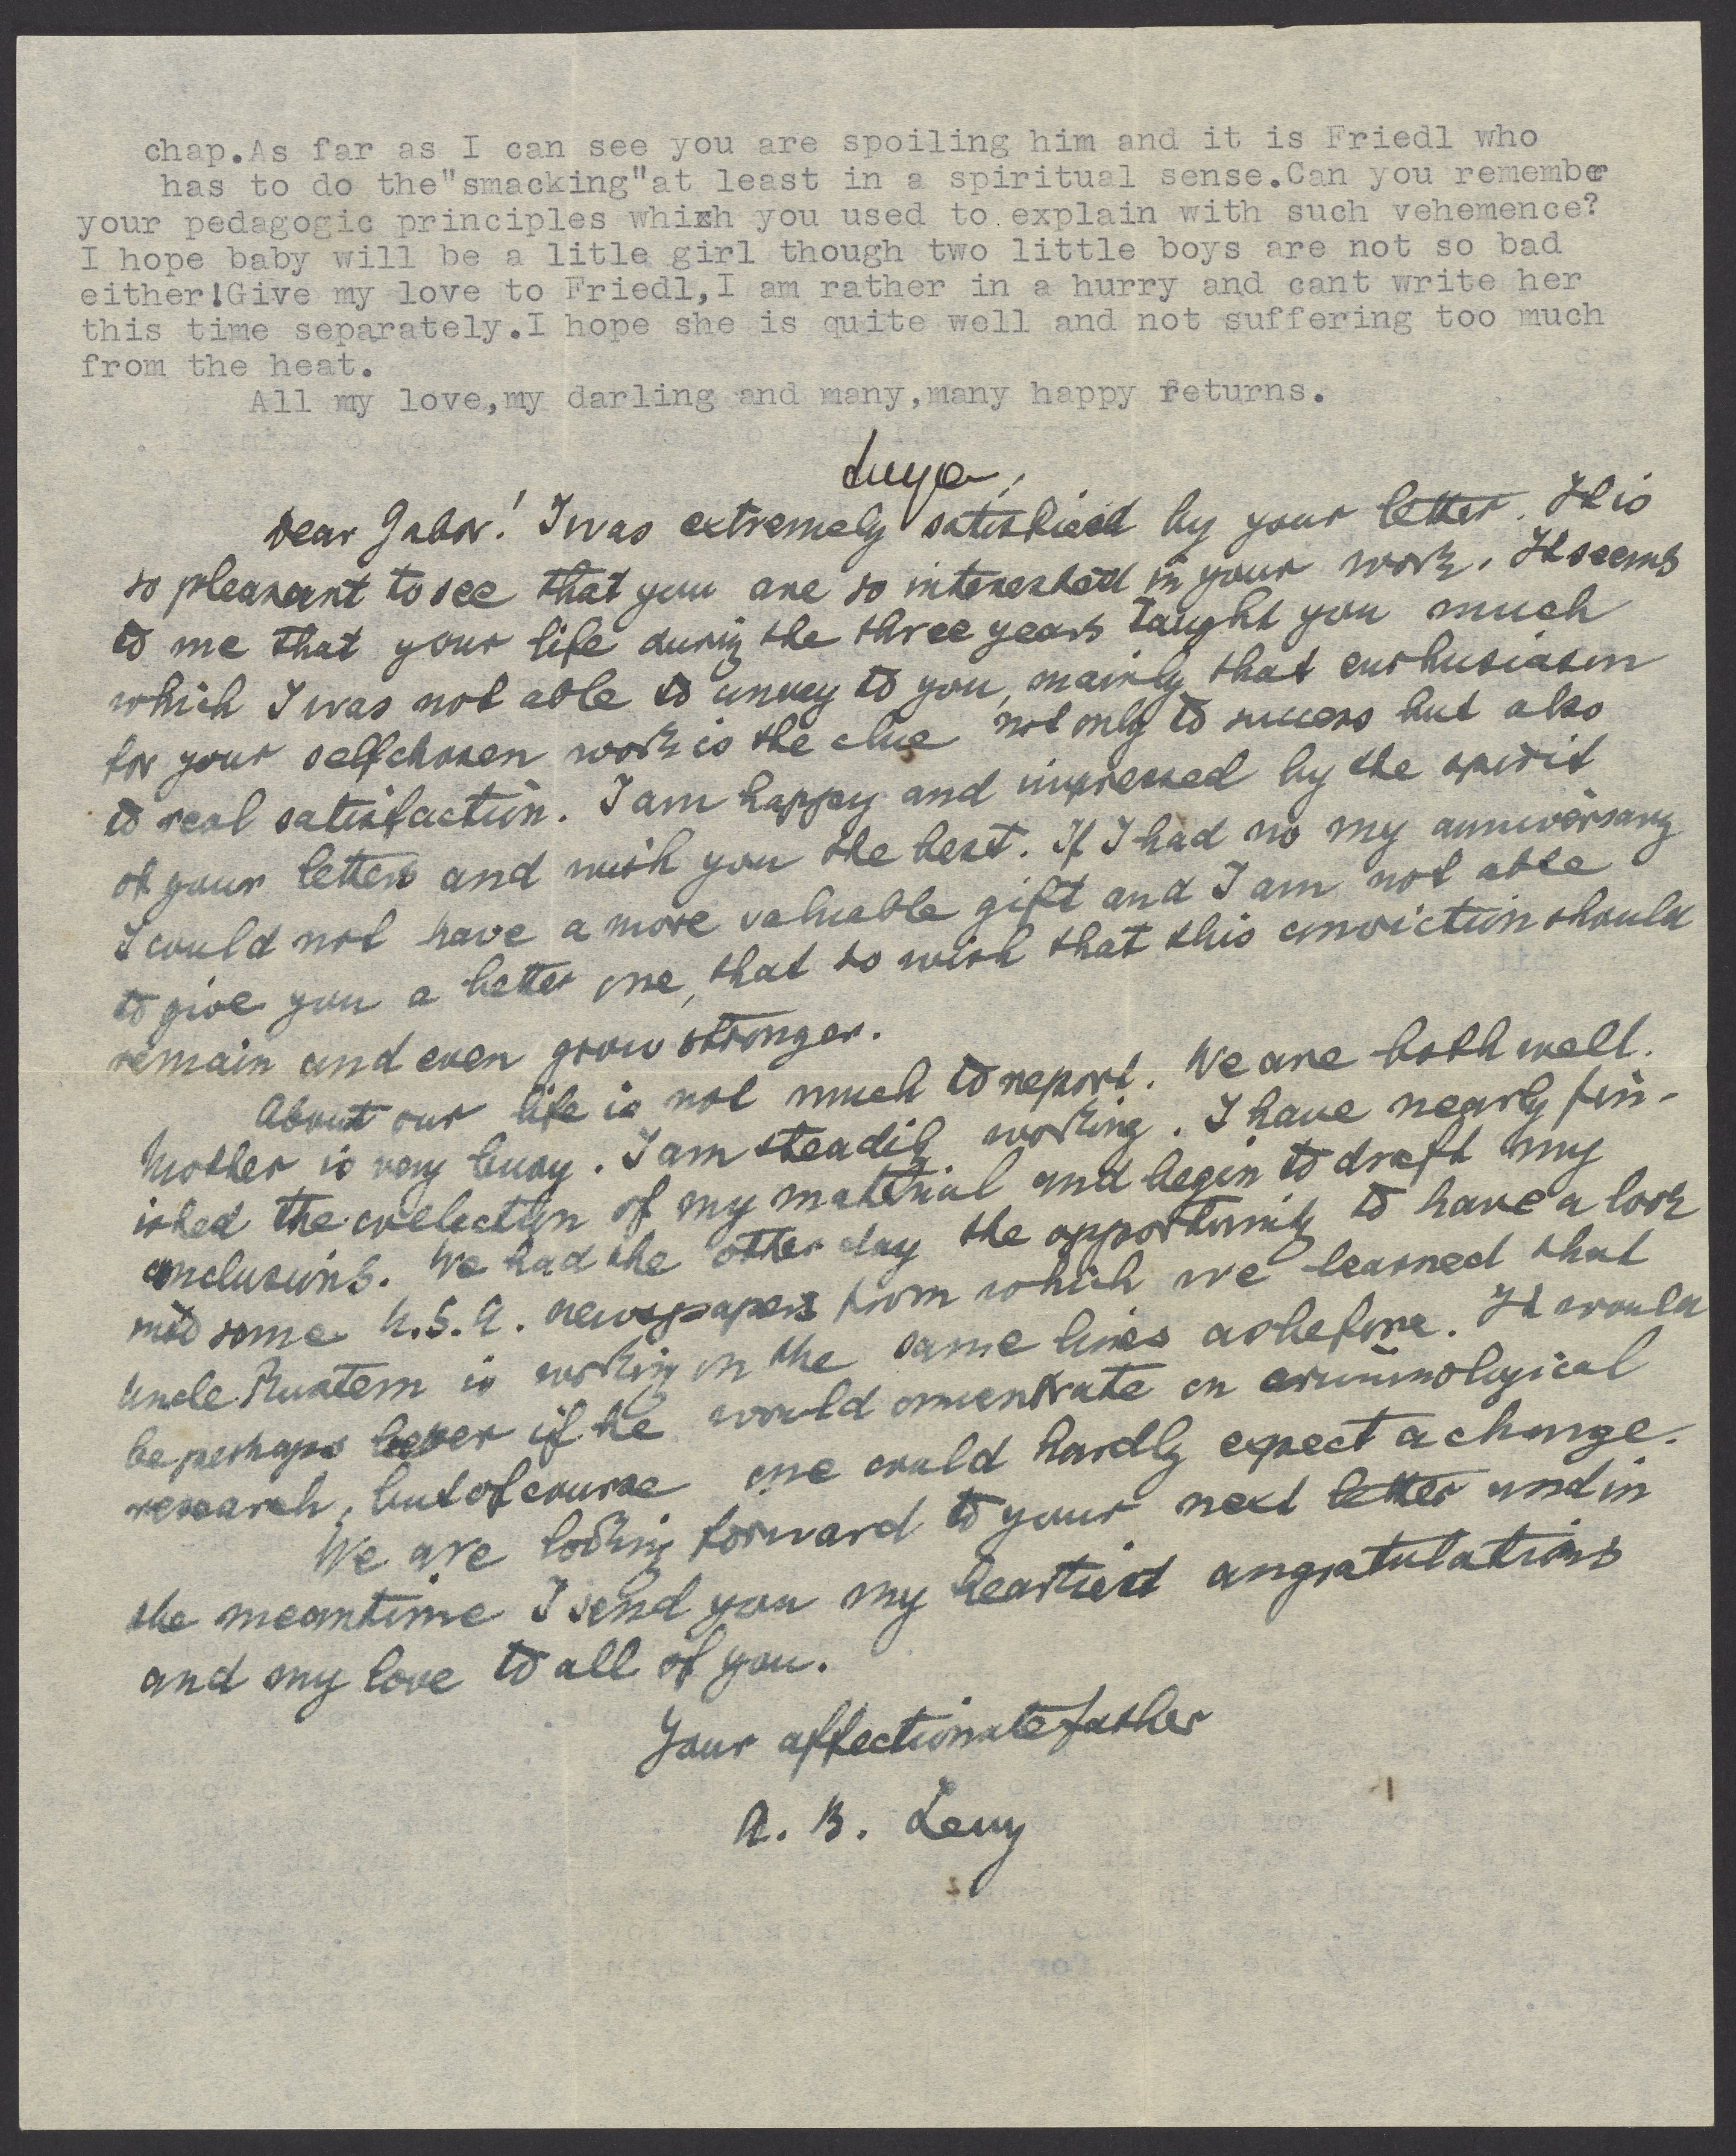 chap.As far as I can see you are spoiling him and it is Friedl who
has to do the"smacking"at least in a spiritual sense.Can you remember
your pedagogic principles whixh you used to explain with such vehemence?
I hope baby will be a litle girl though two little boys are not so bad
either!Give my love to Friedl,I am rather in a hurry and cant write her
this time separately.I hope she is quite well and not suffering too much
from the heat.
All my love,my darling and many,many happy returns.
Dear Gabor! I was extremely satisfied by your letter. It is
so pleasant to see that you are so interested in your work. It seems
to me that your life during the three years taught you much
which I was not able to convey to you, mainly that enthusiasm
for your selfchosen work is the clue not only to success but also
to real satisfaction. I am happy and impressed by the spirit
of your letters and wish you the best. If I had no my anniversary
I could not have a more valuable gift and I am not able
to give you a better one, that to wish that this conviction should
remain and even grow stronger.
About our life is not much to report. We are both well.
Mother is very busy. I am steadily working. I have nearly fin-
ished the collection of my material and begin to draft my
conclusions. We had the other day the opportunity to have a look
into some U.S.A. newspapers from which we learned that
Uncle is working on the same lines as before. It would
be perhaps better if he would concentrate on criminological
research, but of course one could hardly expect a change.
We are looking forward to your next letter and in
the meantime I send you my heartiest congratulations
and my love to all of you.
Your affectionate father
A. B. Levy